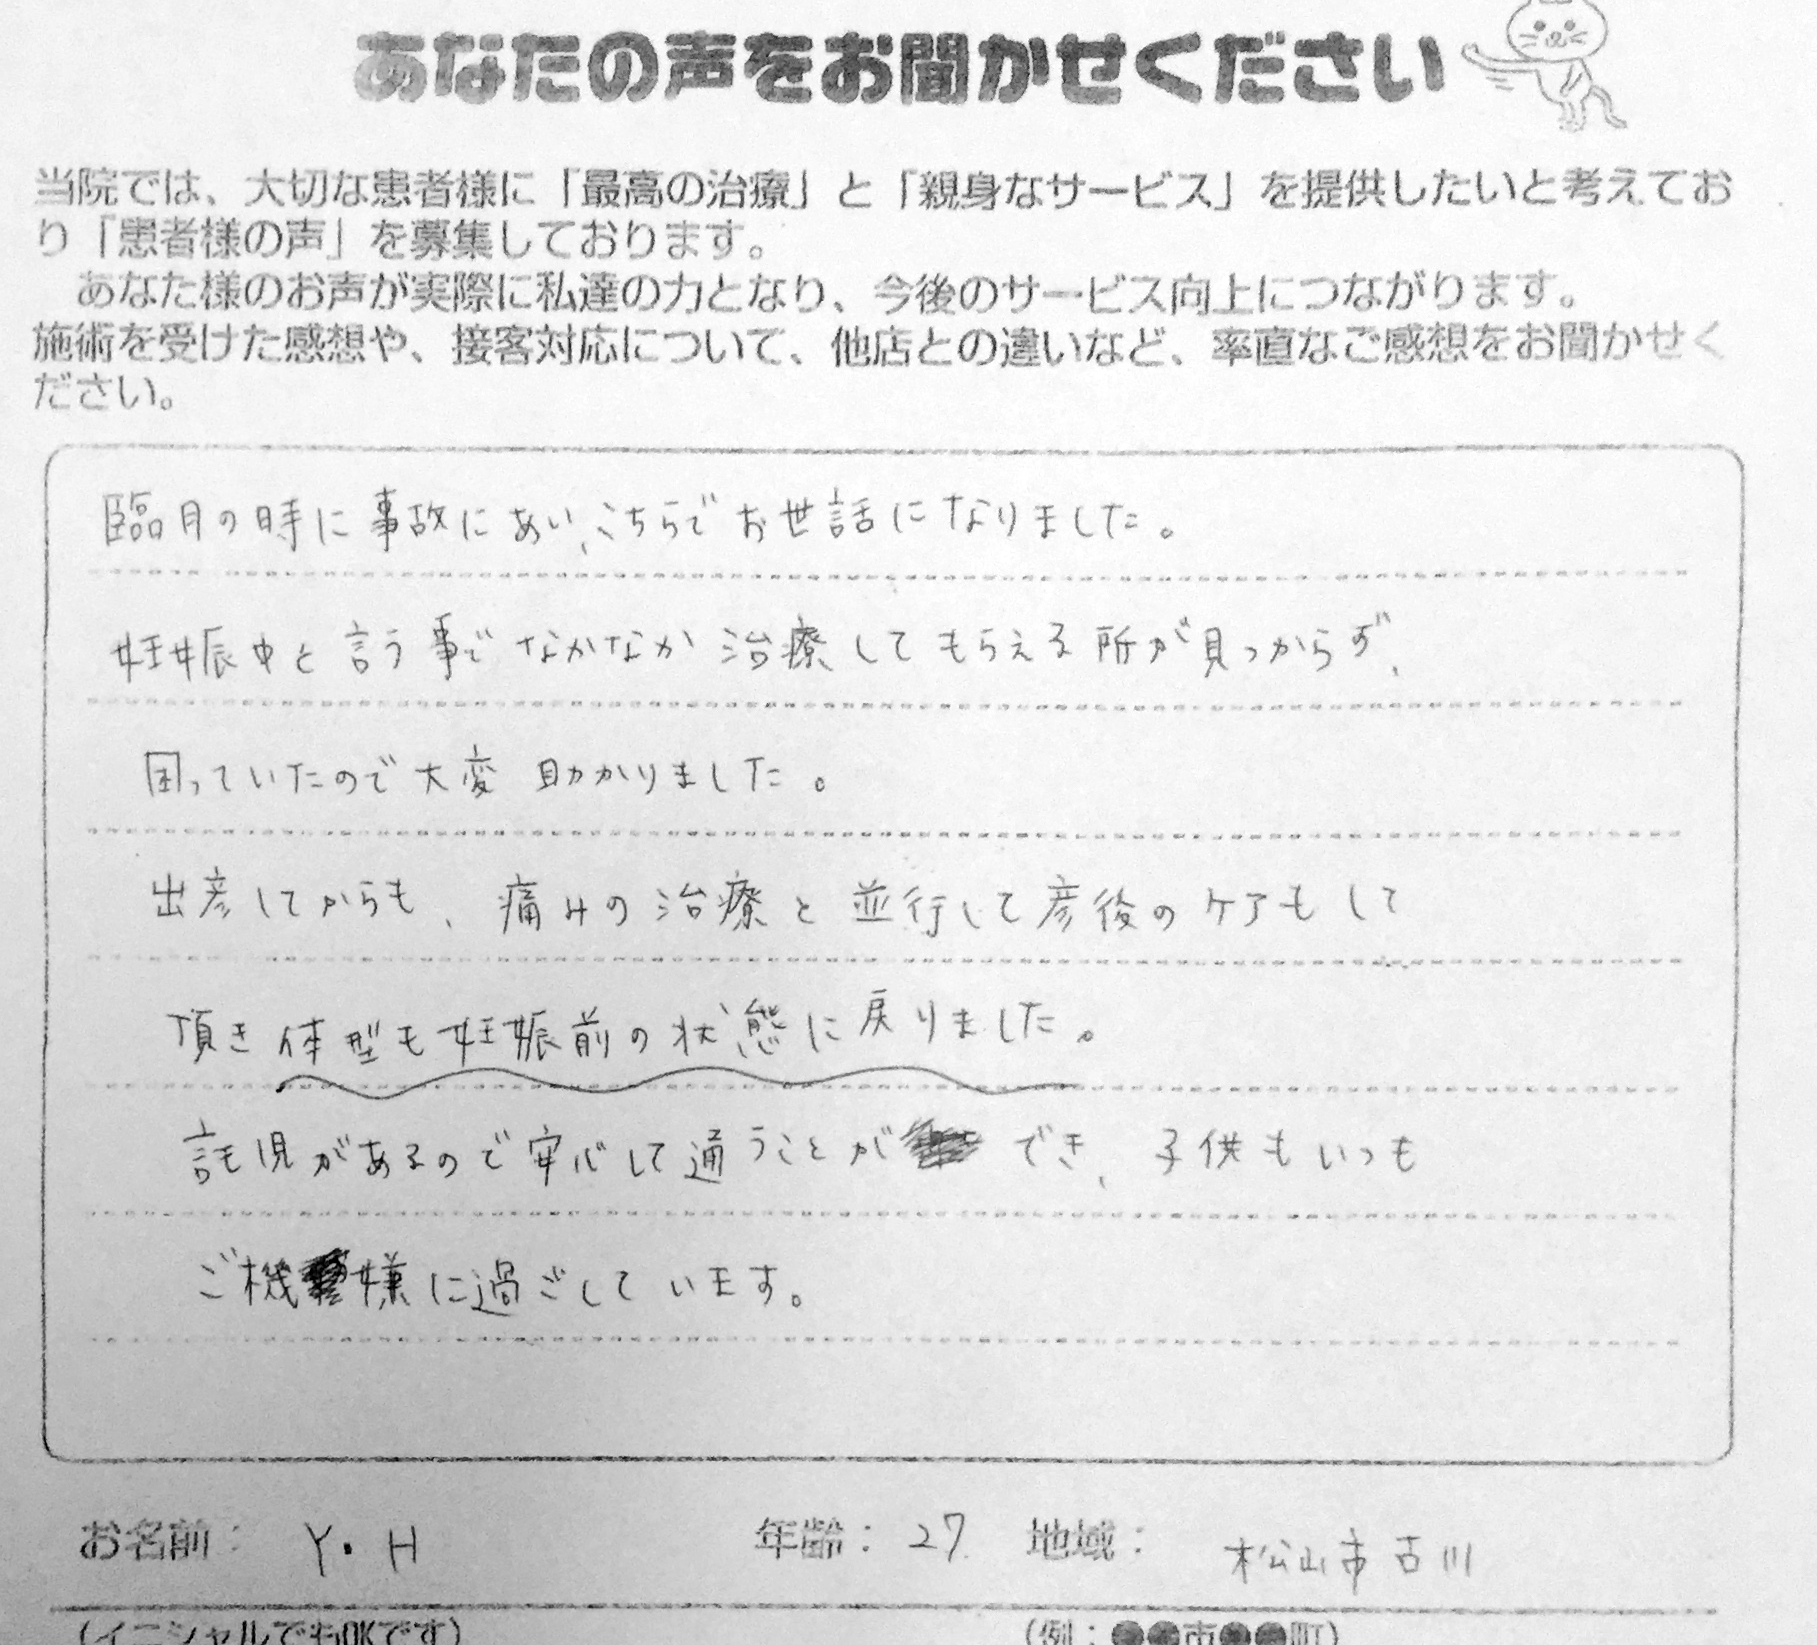 あなたの声をお聞かせください
当院では、大切な患者様に「最高の治療」と「親身なサービス」を提供したいと考えてお
り「患者様の声」を募集しております。
あなた様のお声が実際に私達の力となり、今後のサービス向上につながります。
施術を受けた感想や、接客対応について、他店との違いなど、率直なご感想をお聞かせく
ださい。
臨月の時に事故にあい、こちらでお世話になりました。
妊娠中と言う事でなかなか治療してもらえる所が見つからず、
困っていたので大変助かりました。
出産してからも、痛みの治療と並行して産後のケアもして
頂き体型も妊娠前の状態に戻りました。
託児があるので安心して通うことができ、子供もいつも
ご機嫌に過ごしています。
お名前： Y・H 年齢： 27 地域： 松山市古川
(イニシャルでもOKです) (例：●●市●●町)